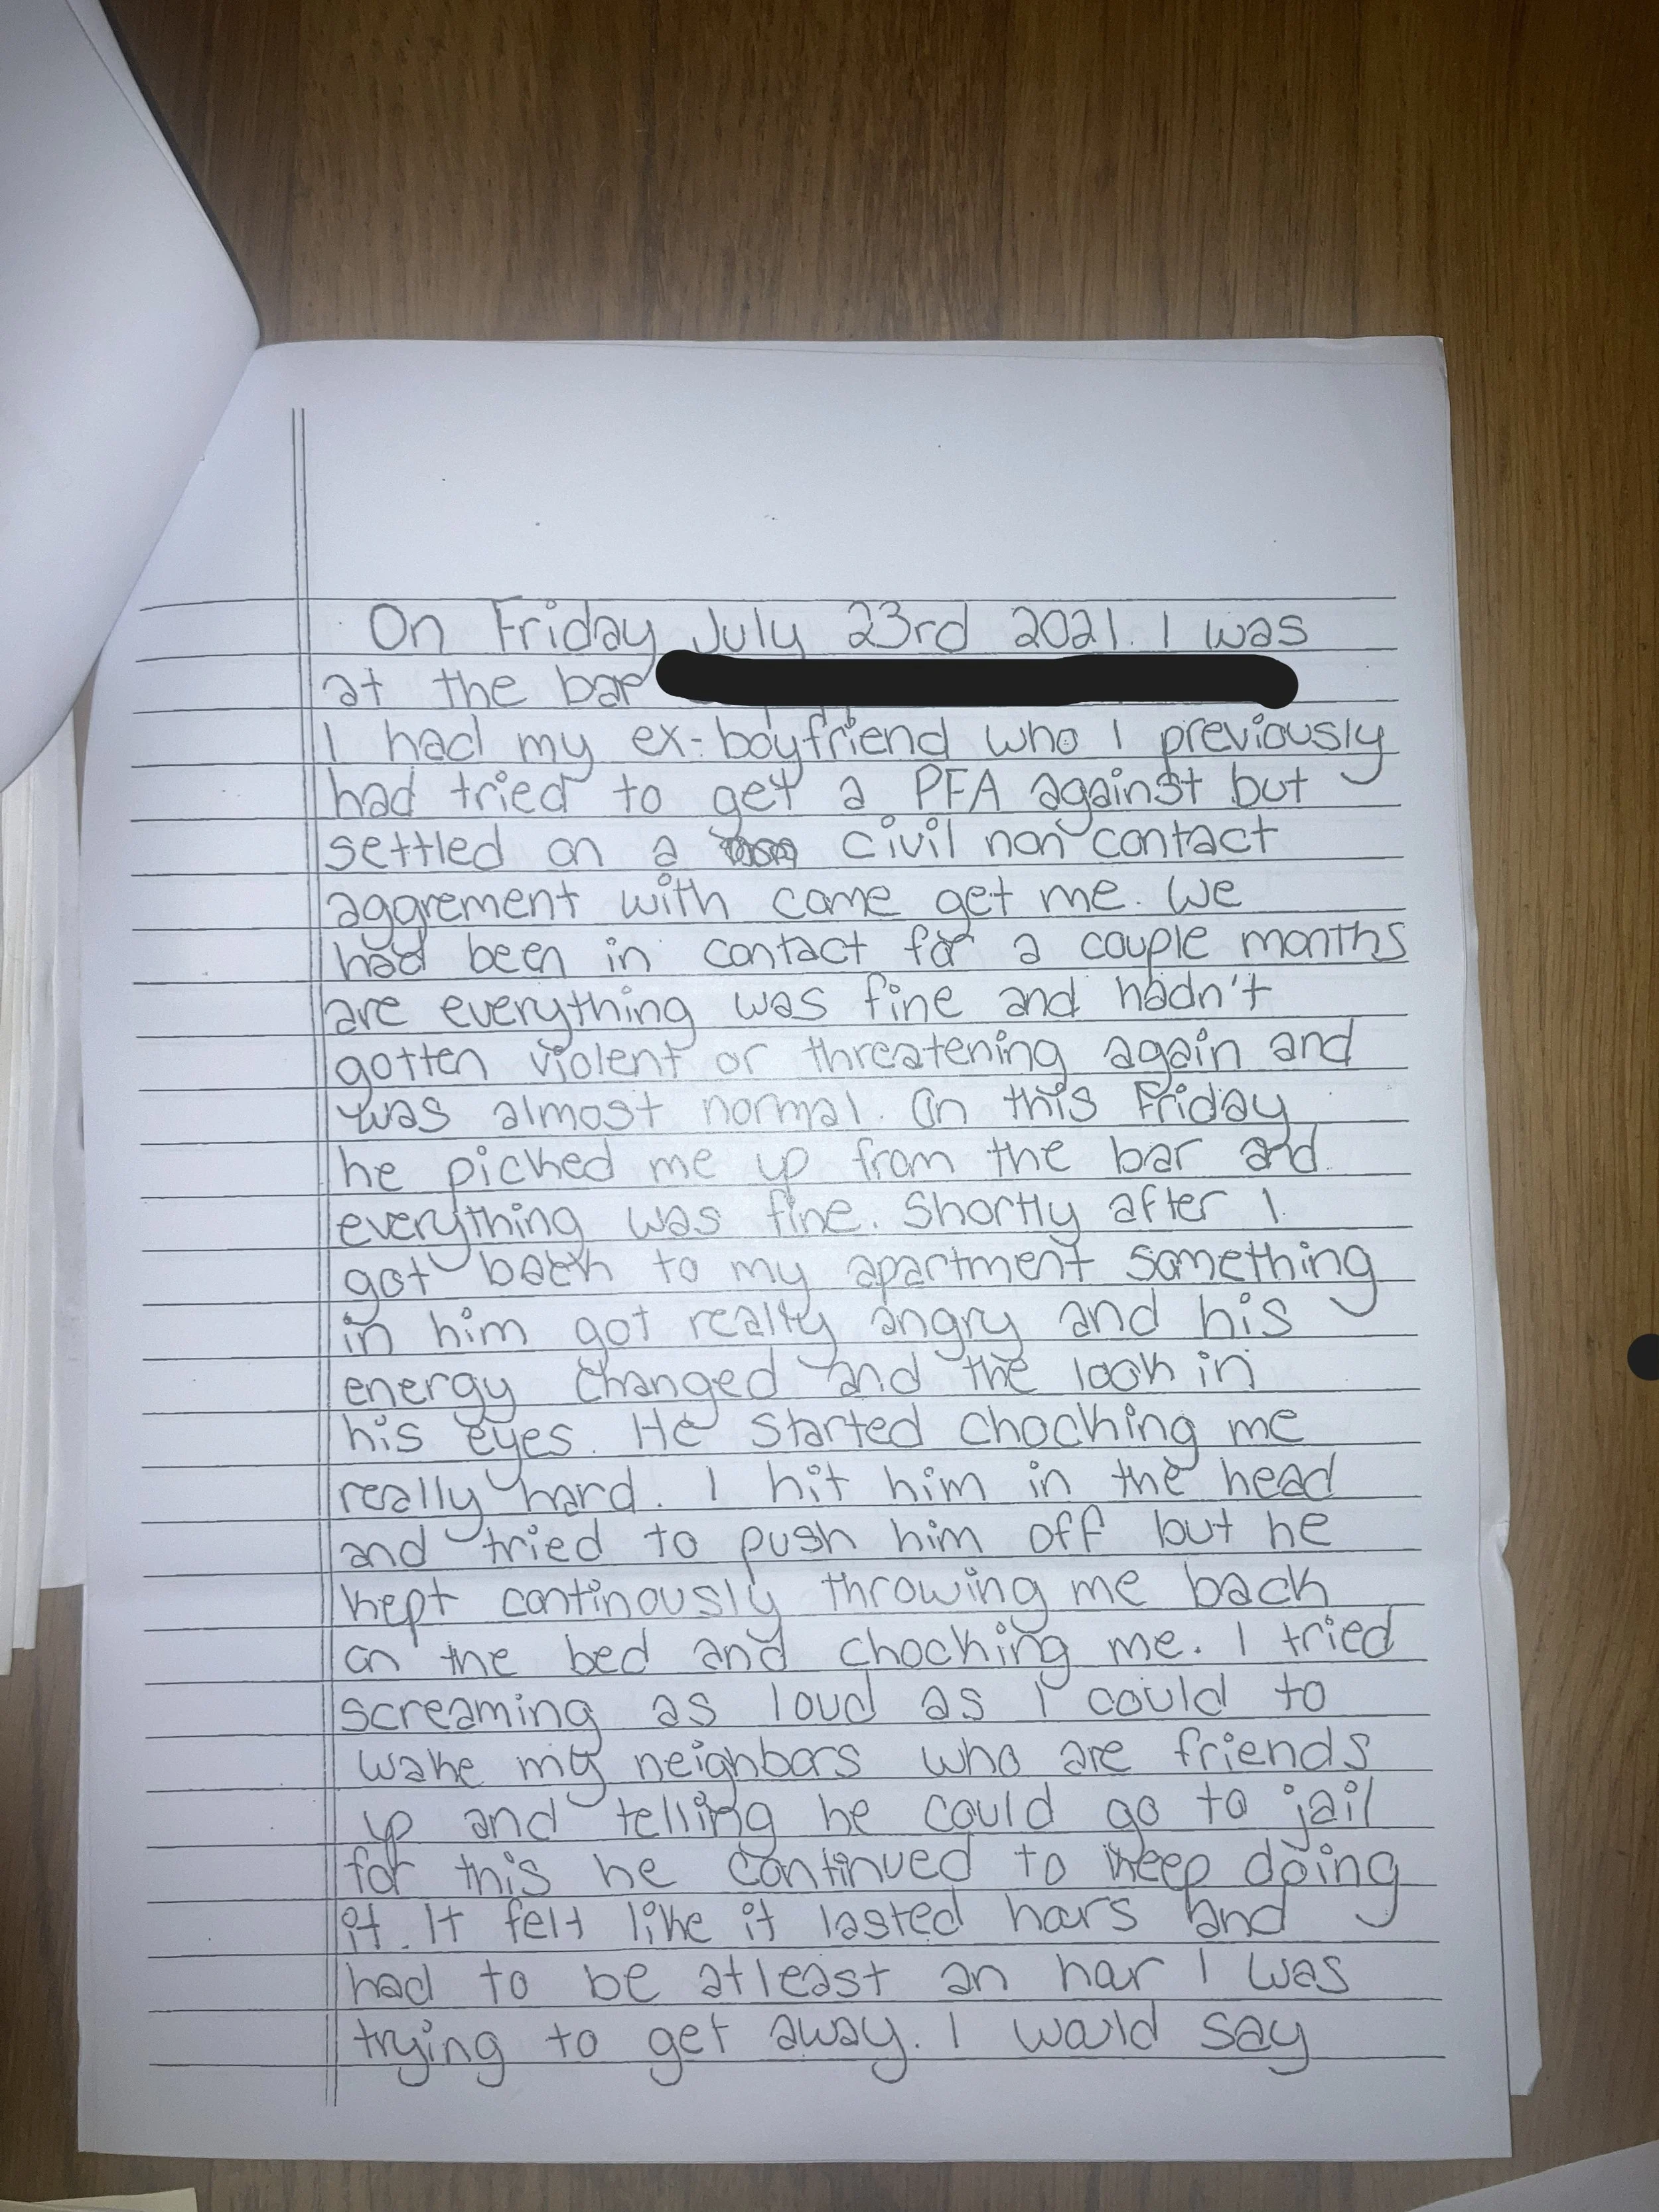 On Friday July 23rd 2021. I was
at the bar
I had my ex-boyfriend who I previously
had tried to get a PFA against but
settled on a civil non contact
aggrement with come get me. We
had been in contact for a couple months
are everything was fine and hadn't
gotten violent or threatening again and
was almost normal. On this Friday
he picked me up from the bar and
everything was fine. Shortly after I
got back to my apartment something
in him got really angry and his
energy changed and the look in
his eyes. He started chocking me
really hard. I hit him in the head
and tried to push him off but he
kept continously throwing me back
on the bed and chocking me. I tried
screaming as loud as I could to
wake my neighbors who are friends
up and telling he could go to jail
for this he continued to keep doing
it. It felt like it lasted hours and
had to be atleast an hour I was
trying to get away. I would say